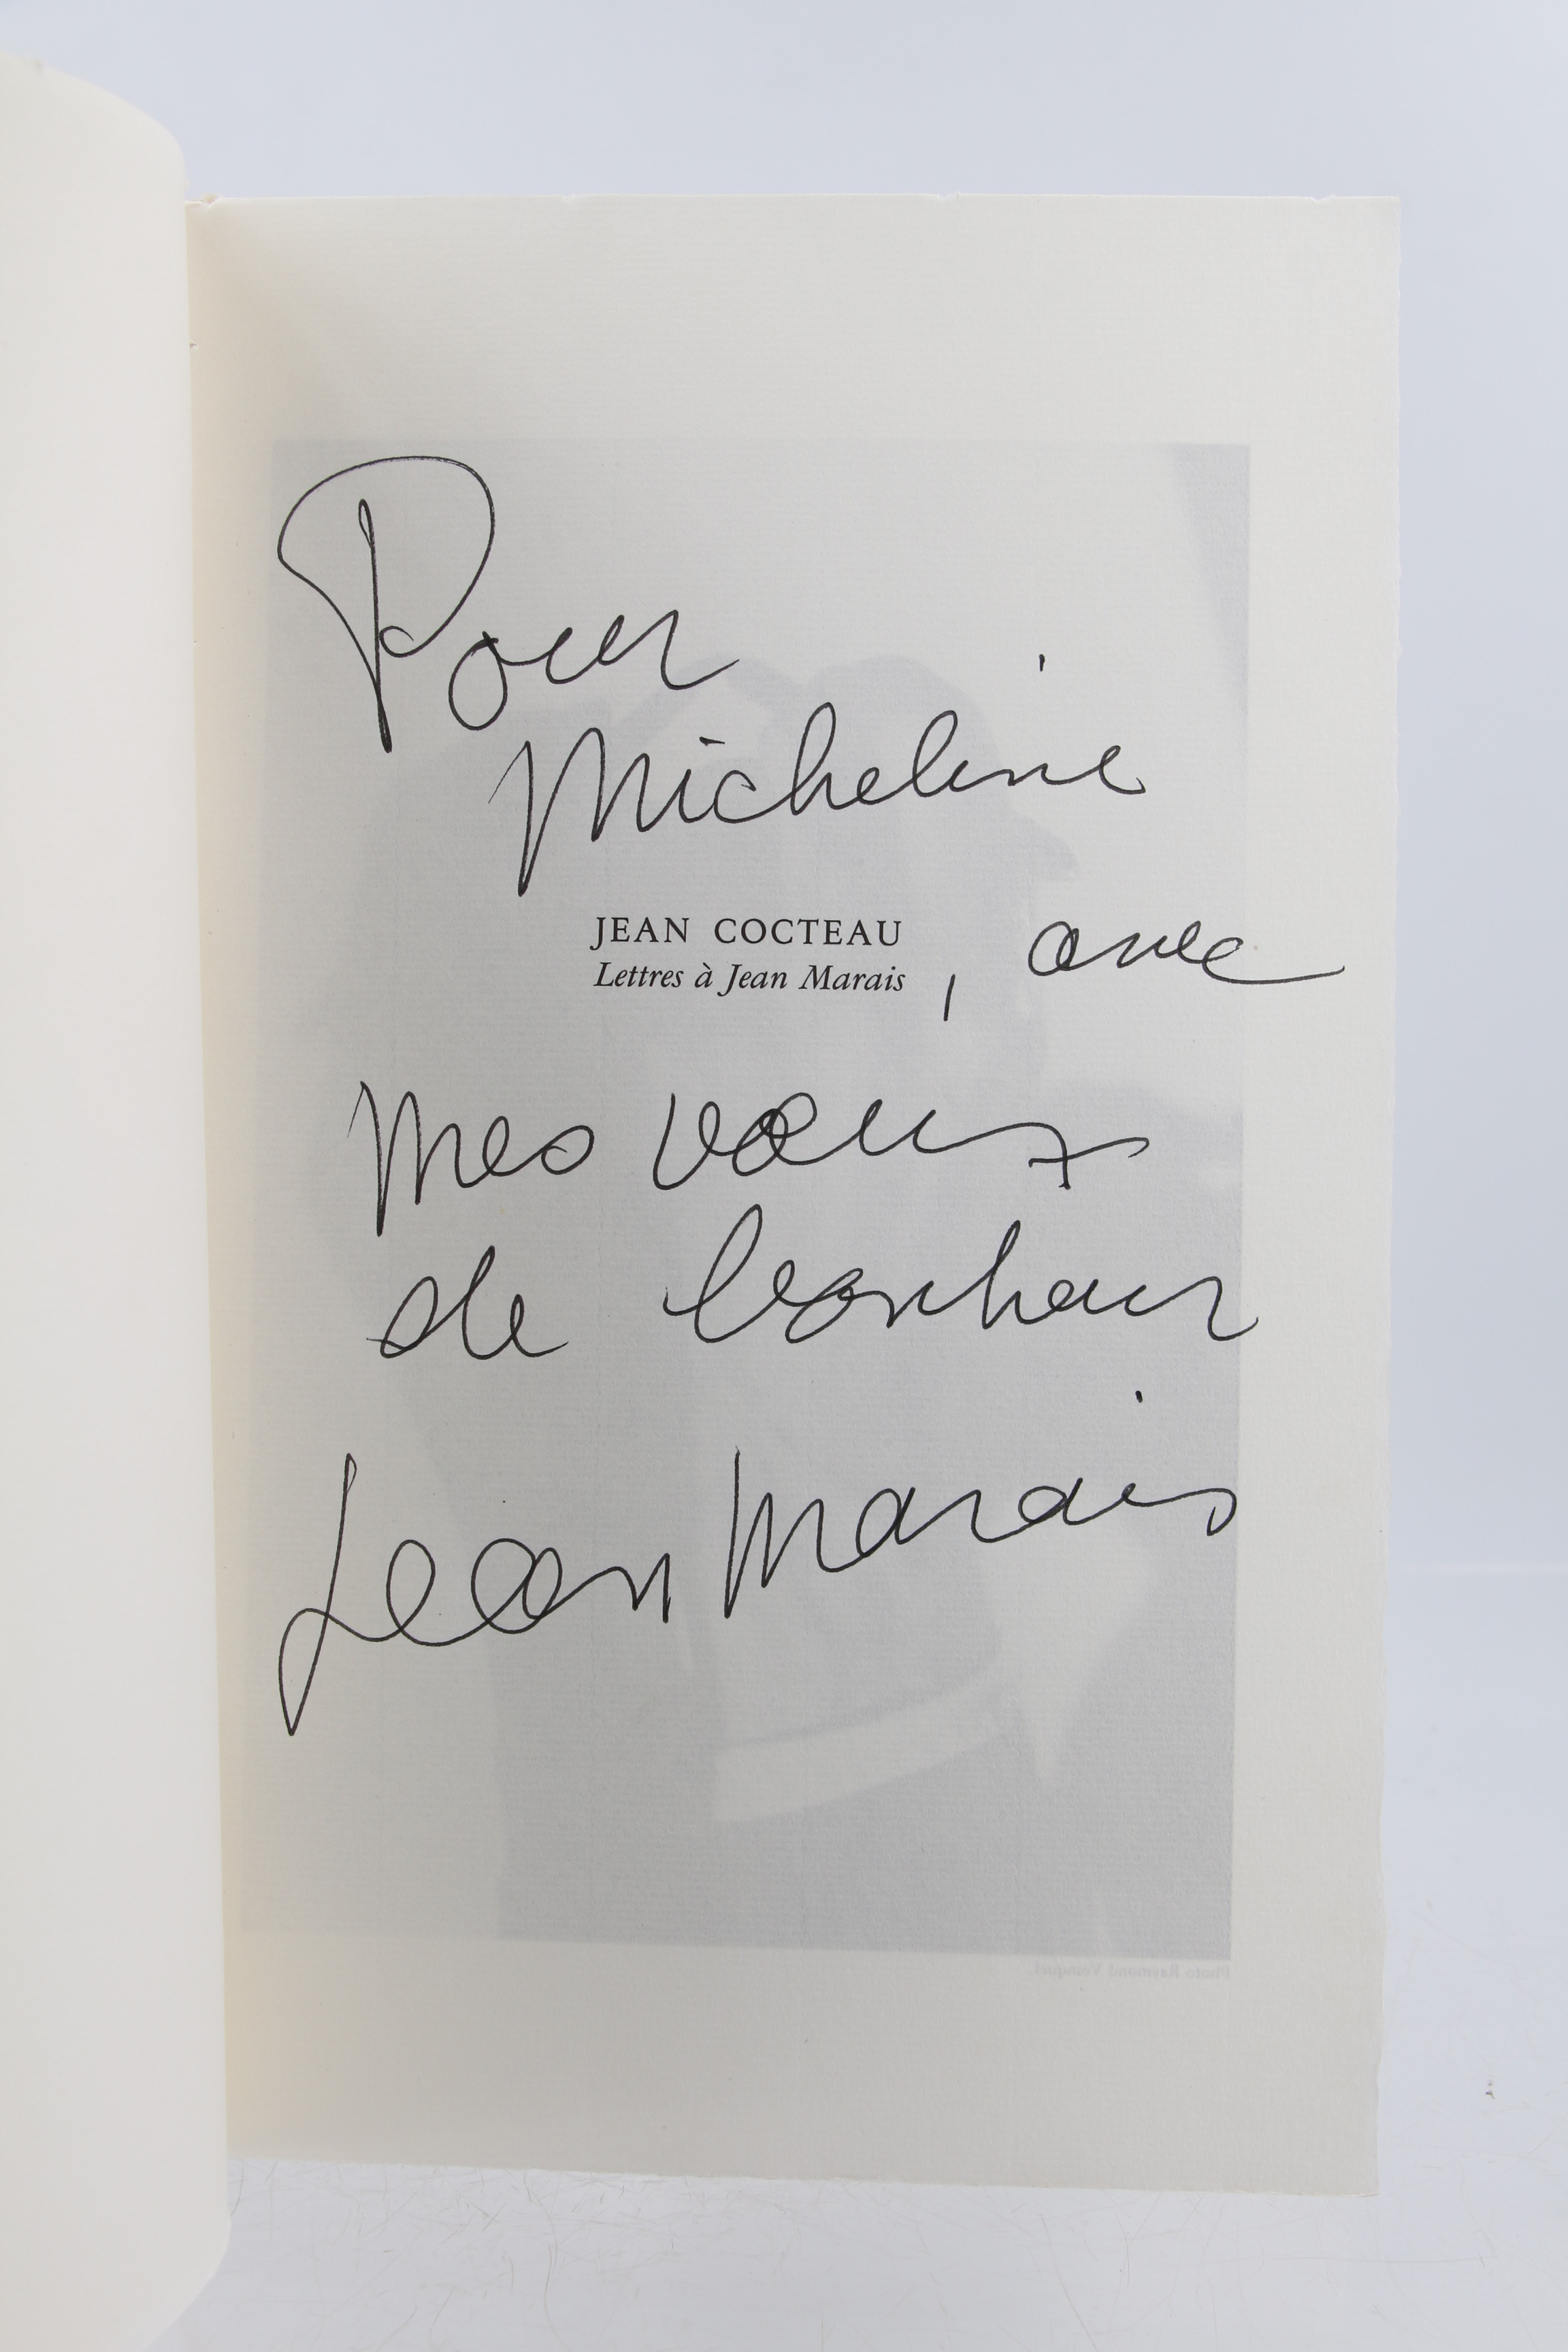 Pour
Micheline
JEAN COCTEAU
Lettres à Jean Marais
, avec
mes vœux
de bonheur
Jean Marais
Photo Raymond Voinquel.